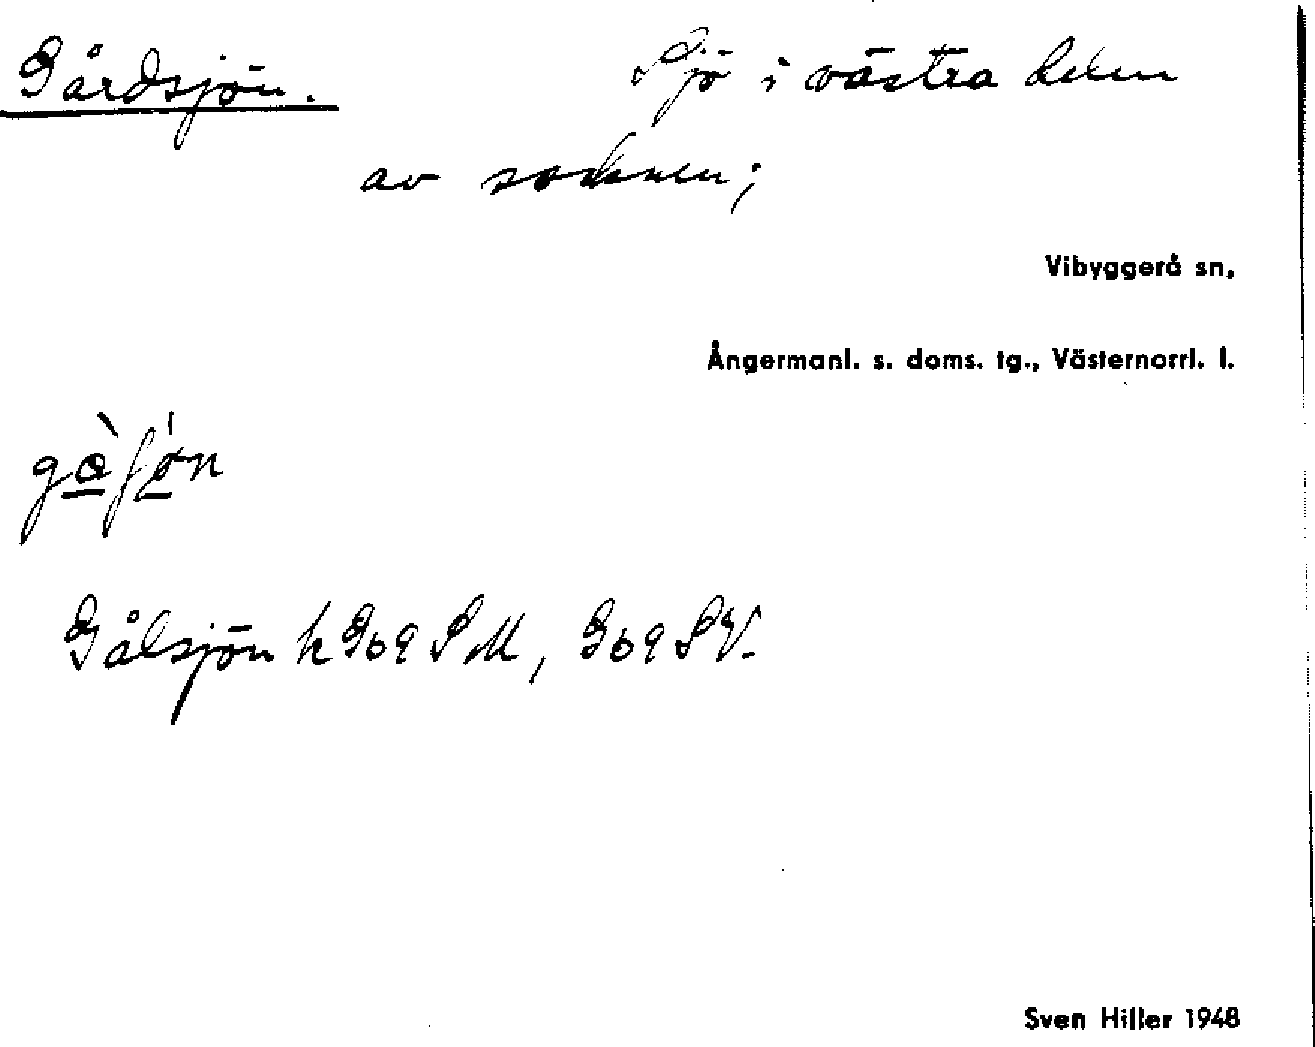 Gårdsjön. Sjö i västra delen
av socknen;
Vibyggerå sn,
Ångermanl. s. doms. tg., Västernorrl. l.
Gålsjön h 369 SM, 369 SV.
Sven Hiller 1948